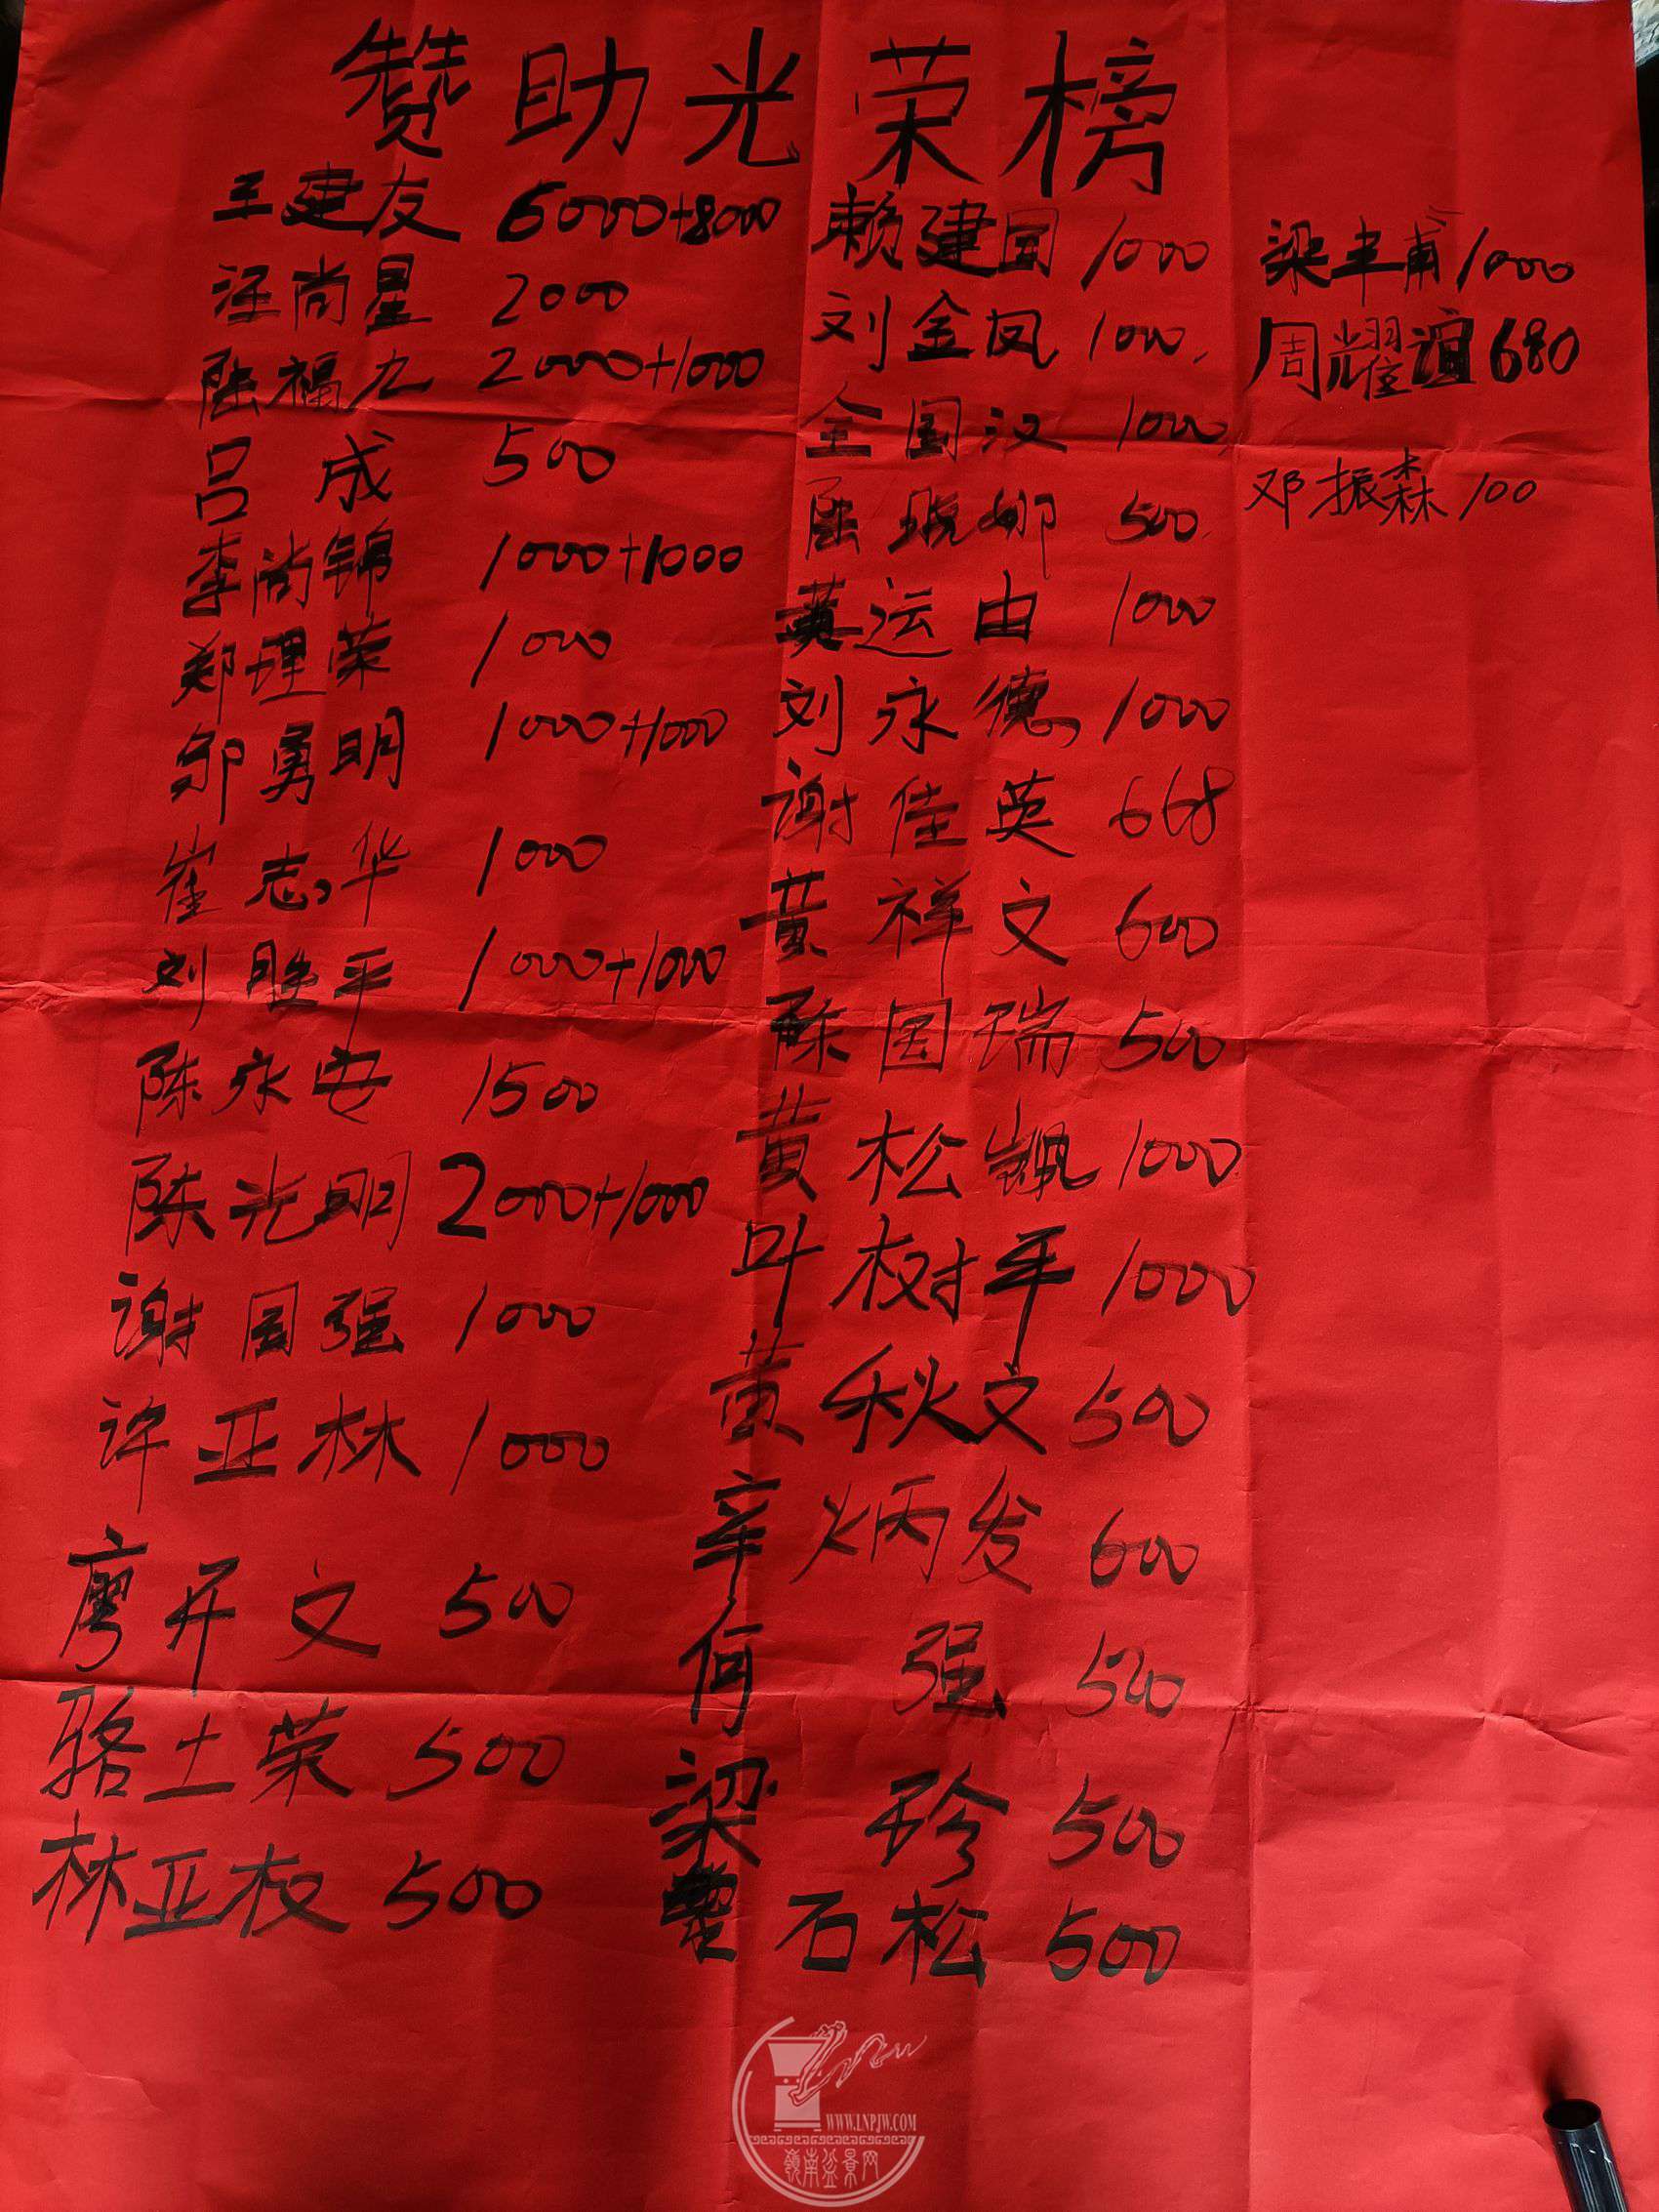 赞助光荣榜
王建友 6000+8000
汪尚星 2000
陆福九 2000+1000
吕成 500
李尚锦 1000+1000
郑理荣 1000
邹勇明 1000+1000
崔志华 1000
刘胜平 1000+1000
陈永安 1500
陈光明 2000+1000
谢国强 1000
许亚林 1000
廖开文 500
骆土荣 500
林亚权 500
赖建国 1000
刘金凤 1000
全国汉 1000
陆 娜 500
黄运由 1000
刘永德 1000
谢佳英 668
黄祥文 600
陈国瑞 500
黄松 1000
叶树平 1000
黄秋文 500
辛炳发 600
何强 500
梁珍 500
石松 500
梁丰甫 1000
周耀谊 680
邓振森 100
WWW.LNPJW.COM
嶺南盆景网